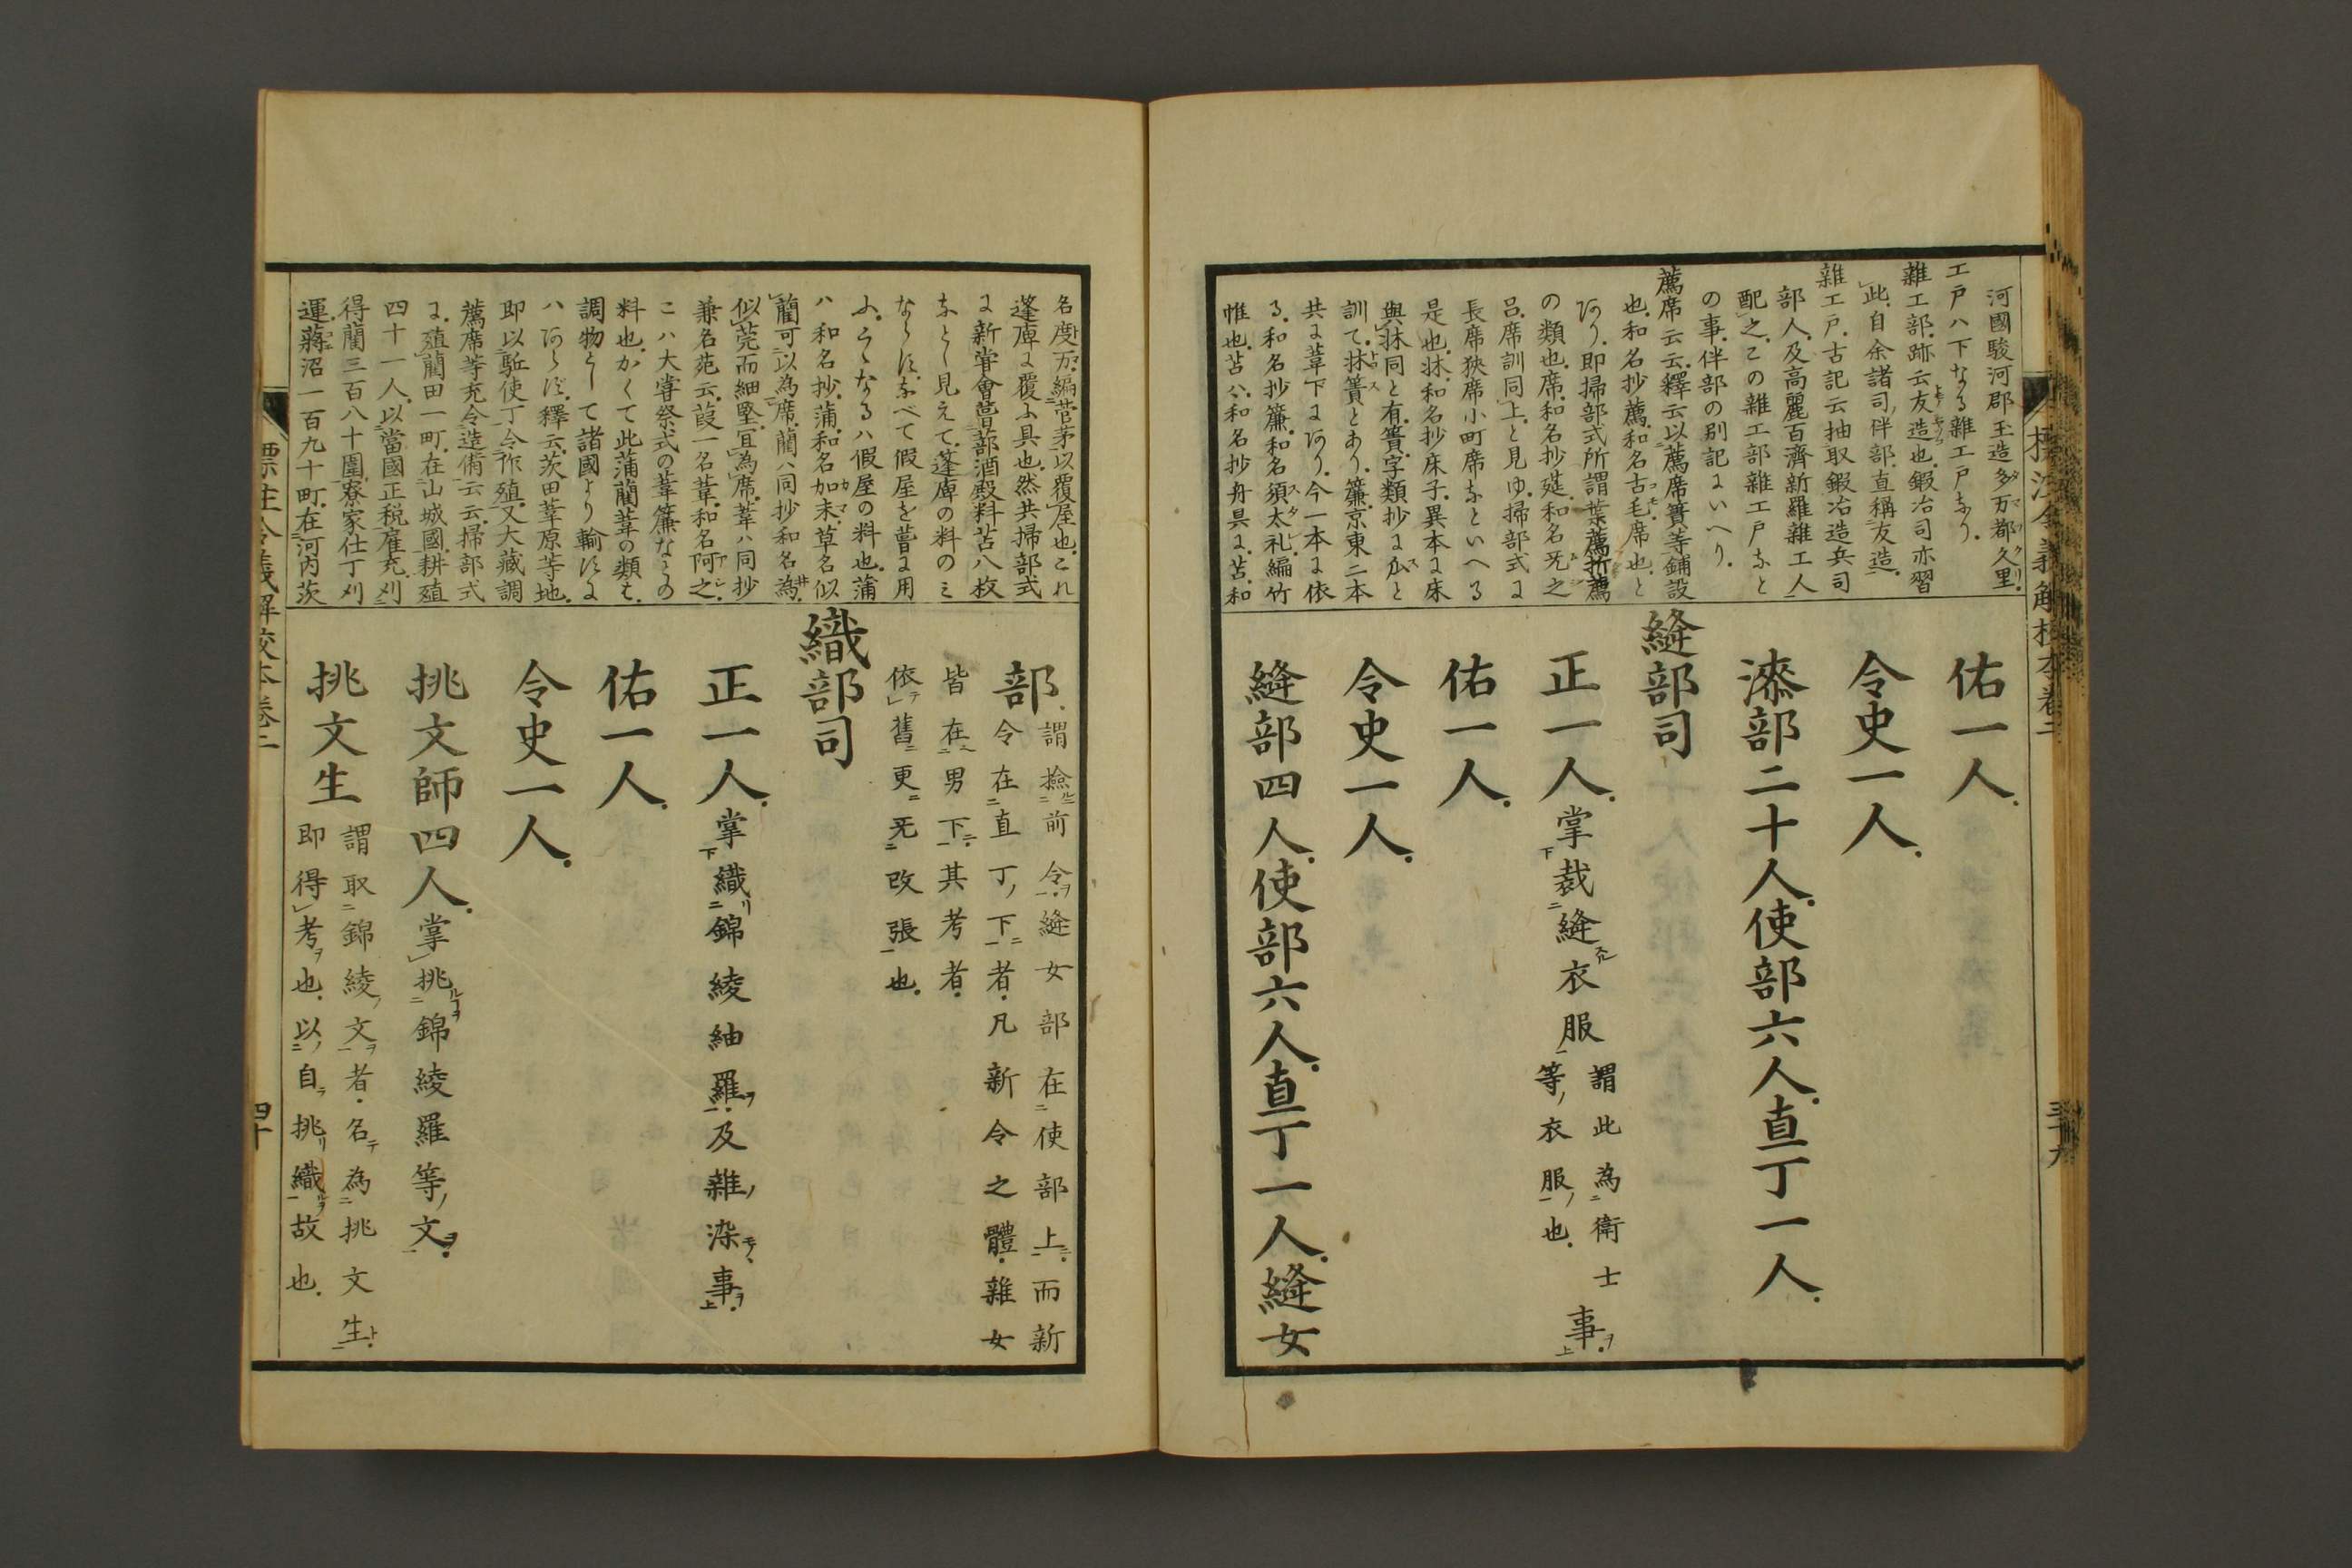 河國駿河郡玉造多万都久里
工戸ハ下なる雜工戸なり
雜工部跡云友造也鍛冶司亦習
此自余諸司伴部直稱友造
雜工戸古記云抽取鍛冶造兵司
部人及高麗百濟新羅雜工人
配之この雜工部雜工戸なと
の事伴部の別記にいへり
薦席云云釋云以薦席簀等鋪設
也和名抄薦和名古毛席也と
あり即掃部式所謂葉薦折薦
の類也席和名抄莚和名无之
呂席訓同上と見ゆ掃部式に
長席狹席小町席なといへる
是也牀和名抄床子異本に床
與牀同と有簀字類抄にスと
訓て牀簀とあり簾京東二本
共に葦下にあり今一本に依
る和名抄簾和名須太礼編竹
帷也苫ハ和名抄舟具に苫和
佑一人
令史一人
漆部二十人使部六人直丁一人
縫部司
正一人掌裁縫衣服謂此為衛士等衣服也事
佑一人
令史一人
縫部四人使部六人直丁一人縫女
三十九
名度万編菅茅以覆屋也これ
蓬庫に覆ふ具也然共掃部式
に新甞會葺部酒殿料苫八枚
なとし見えて蓬庫の料のミ
ならすなべて假屋を葺に用
ふゝなるハ假屋の料也蒲
ハ和名抄蒲和名加末草名似
藺可以為席藺ハ同抄和名為
似莞而細堅宜為席葦ハ同抄
兼名苑云葭一名葦和名阿之
こハ大甞祭式の葦簾なとの
料也かくて此蒲藺葦の類も
調物として諸國より輸すに
ハあらす釋云茨田葦原等地
即以駈使丁令作殖又大藏調
薦席等充令造備云云掃部式
に殖藺田一町在山城國耕殖
四十一人以當國正税雇充刈
得藺三百八十圍寮家仕丁刈
運蒋沼一百九十町在河内茨
部謂撿前令縫女部在使部上而新
令在直丁下者凡新令之體雜女
皆在男下其考者
依舊更无改張也
織部司
正一人掌織錦綾紬羅及雜染事
佑一人
令史一人
挑文師四人掌挑錦綾羅等文
挑文生謂取錦綾文者名為挑文生
即得考也以自挑織故也
標注令義解校本卷二
四十